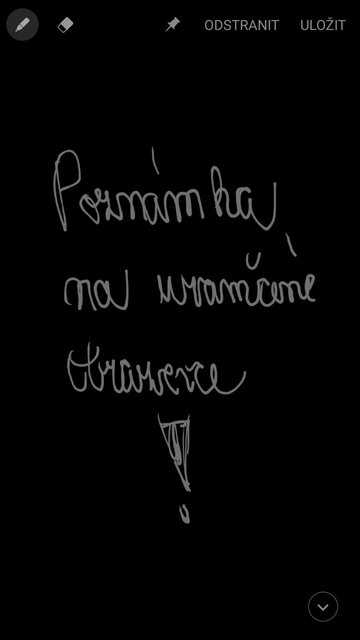 ODSTRANIT ULOŽIT
Poznámka
na uzamčené
obrazovce
!